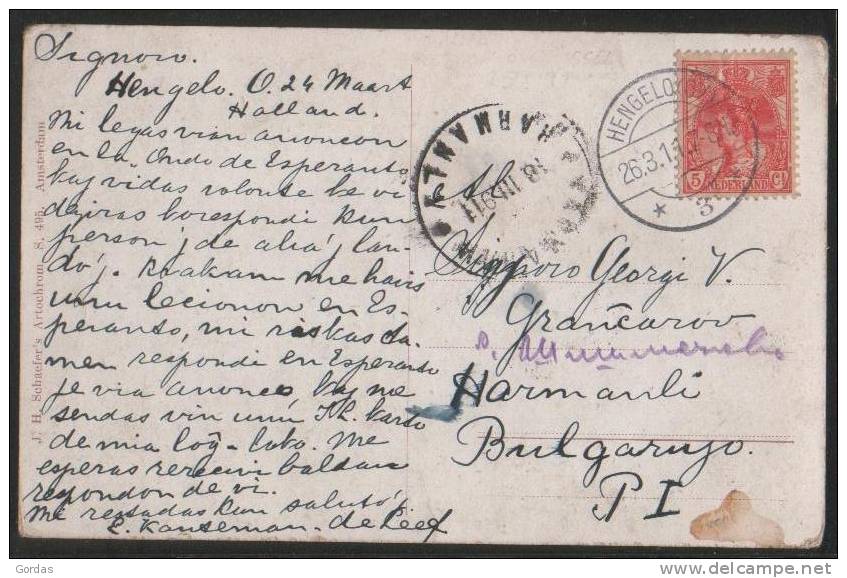 Signoro.
Hengelo. O. 24 Maart
Holland.
Mi legas vian anoncon
en la Ondo de Esperanto
kaj vidas volonte ke vi
deziras korespondi kun
personj de aliaj lan-
doj. Kvakam me havis
unu lecionon en Es-
peranto, mi riskas ta-
men respondi en Esperanto
je via anonco, kaj me
sendas vin unu Ih. karto
de mia loĝ-loko. Me
esperas recevi baldau
respondon de vi.
Mi restadas kun salutoj
E. Kanseman-de Leef
J. H. Schaefer's Artochrom. S. 495. Amsterdam
HENGELO
26.3.11
3
5 Ct
NEDERLAND
HARMANLY
18 III 911
Al
Signoro Georgi V.
Grančarov
Harmanli
Bulgarujo.
P I
Gordas
delcampe.net